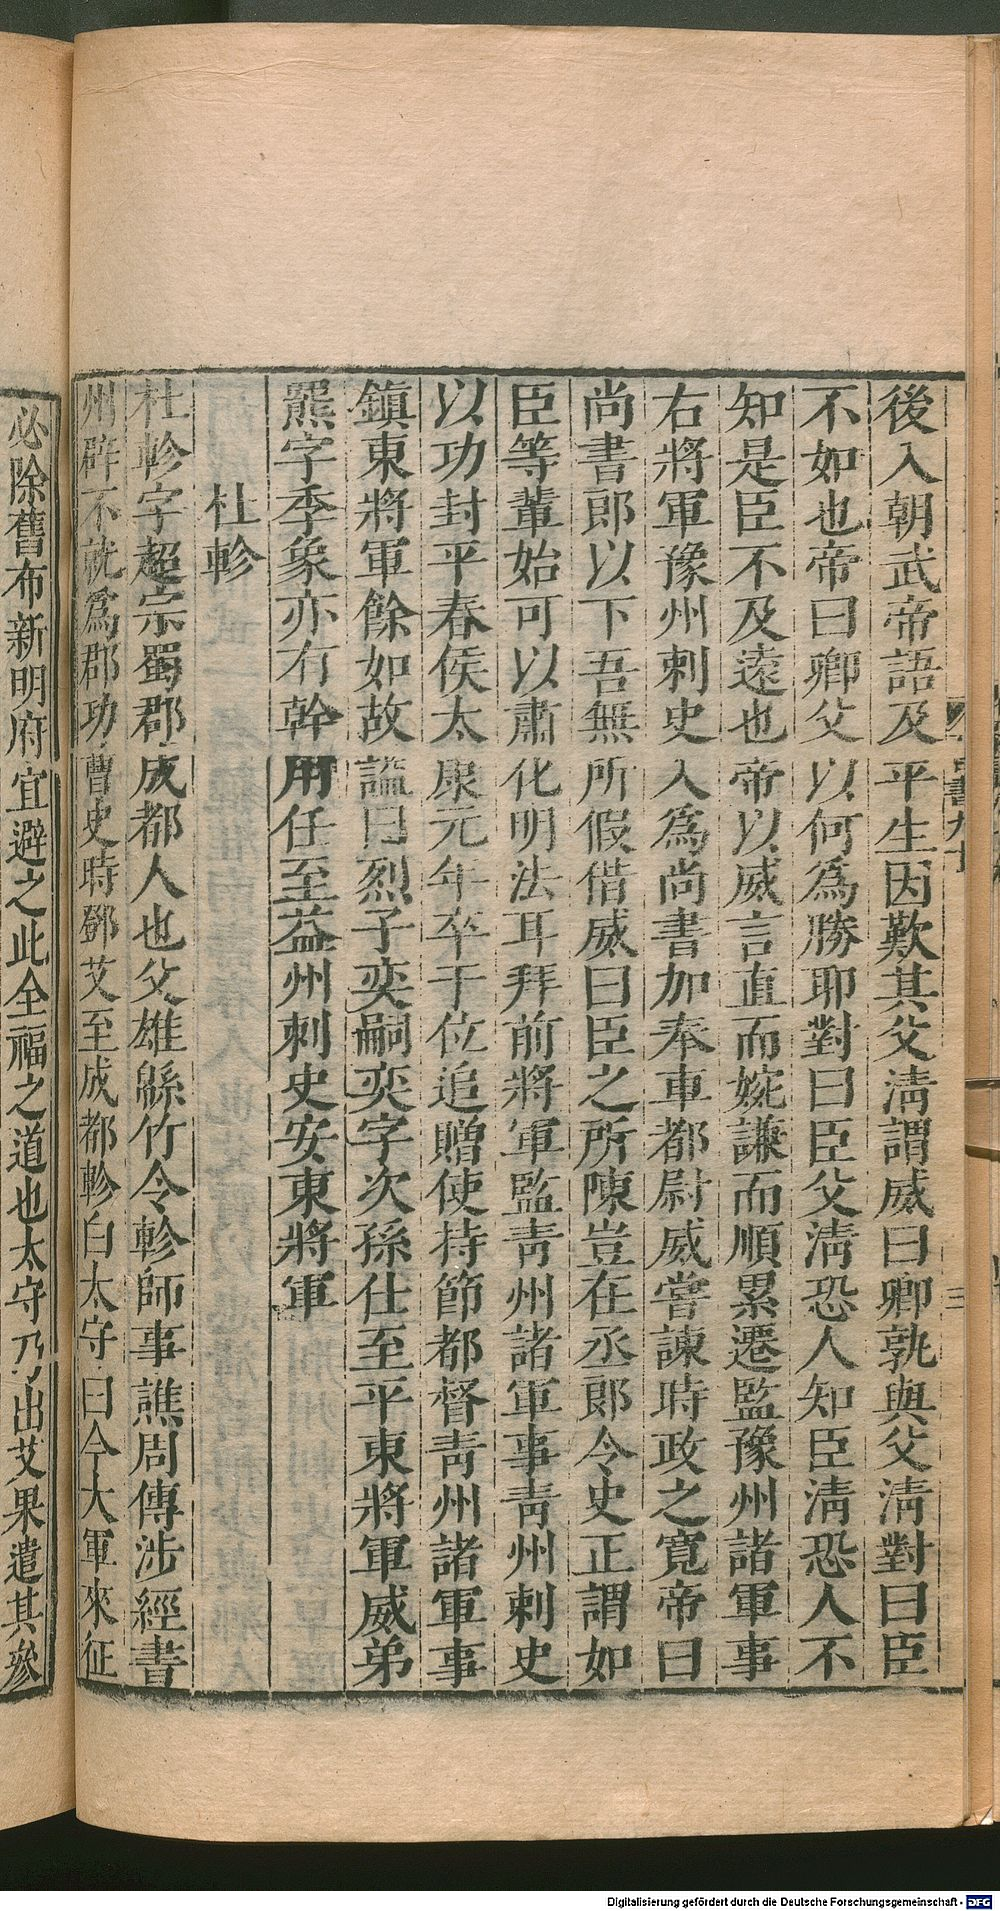 後入朝武帝語及平生因歎其父淸謂威曰卿孰與父淸對曰臣
不如也帝曰卿父以何為勝耶對曰臣父淸恐人知臣淸恐人不
知是臣不及遠也帝以威言直而婉謙而順累遷監豫州諸軍事
右將軍豫州刺史入為尚書加奉車都尉威嘗諫時政之寬帝曰
尚書郎以下吾無所假借威曰臣之所陳豈在丞郎令史正謂如
臣等輩始可以肅化明法耳拜前將軍監靑州諸軍事靑州刺史
以功封平春侯太康元年卒于位追贈使持節都督靑州諸軍事
鎭東將軍餘如故諡曰烈子奕嗣奕字次孫仕至平東將軍威弟
羆字季象亦有幹用任至益州刺史安東將軍
杜軫
杜軫字超宗蜀郡成都人也父雄緜竹令軫師事譙周傳涉經書
州辟不就爲郡功曹史時鄧艾至成都軫白太守曰今大軍來征
必除舊布新明府宜避之此全福之道也太守乃出艾果遣其參
晉書九十
三
Digitalisierung gefördert durch die Deutsche Forschungsgemeinschaft - DFG